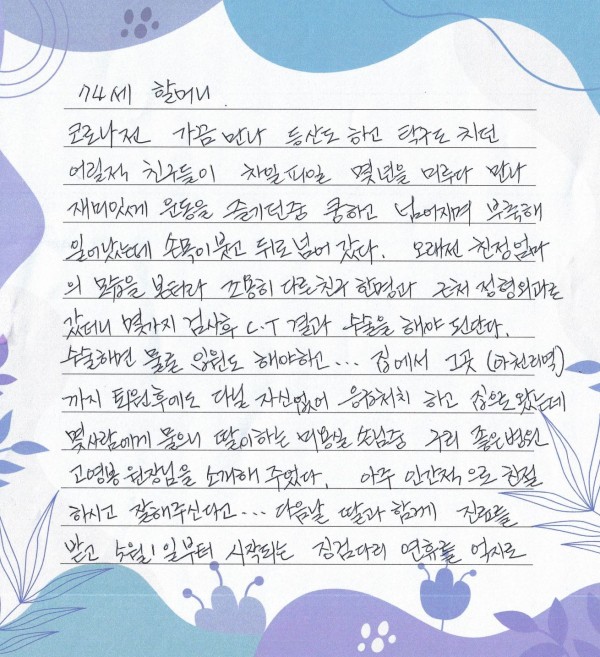 74세 할머니
코로나전 가끔 만나 등산도 하고 탁구도 치던
어릴적 친구들이 차일피일 몇년을 미루다 만나
재미있게 운동을 즐기던중 쿵하고 넘어지며 부축해
일어났는데 손목이 붓고 뒤로 넘어 갔다. 오래전 친정엄마
의 모습을 본터라 조용히 다른친구 한명과 근처 정형외과로
갔더니 몇가지 검사후 C.T 결과 수술을 해야 된단다.
수술하면 물론 입원도 해야하고... 집에서 그곳 (마천리역)
까지 퇴원후에도 다닐 자신없어 응급처치 하고 집으로 왔는데
몇사람에게 물으니 딸이하는 미용실 손님중 구리 좋은병원
고영봉 원장님을 소개해 주었다. 아주 인간적으로 친절
하시고 잘해주신다고... 다음날 딸과 함께 진료를
받고 5월1일부터 시작되는 징검다리 연휴를 억지로